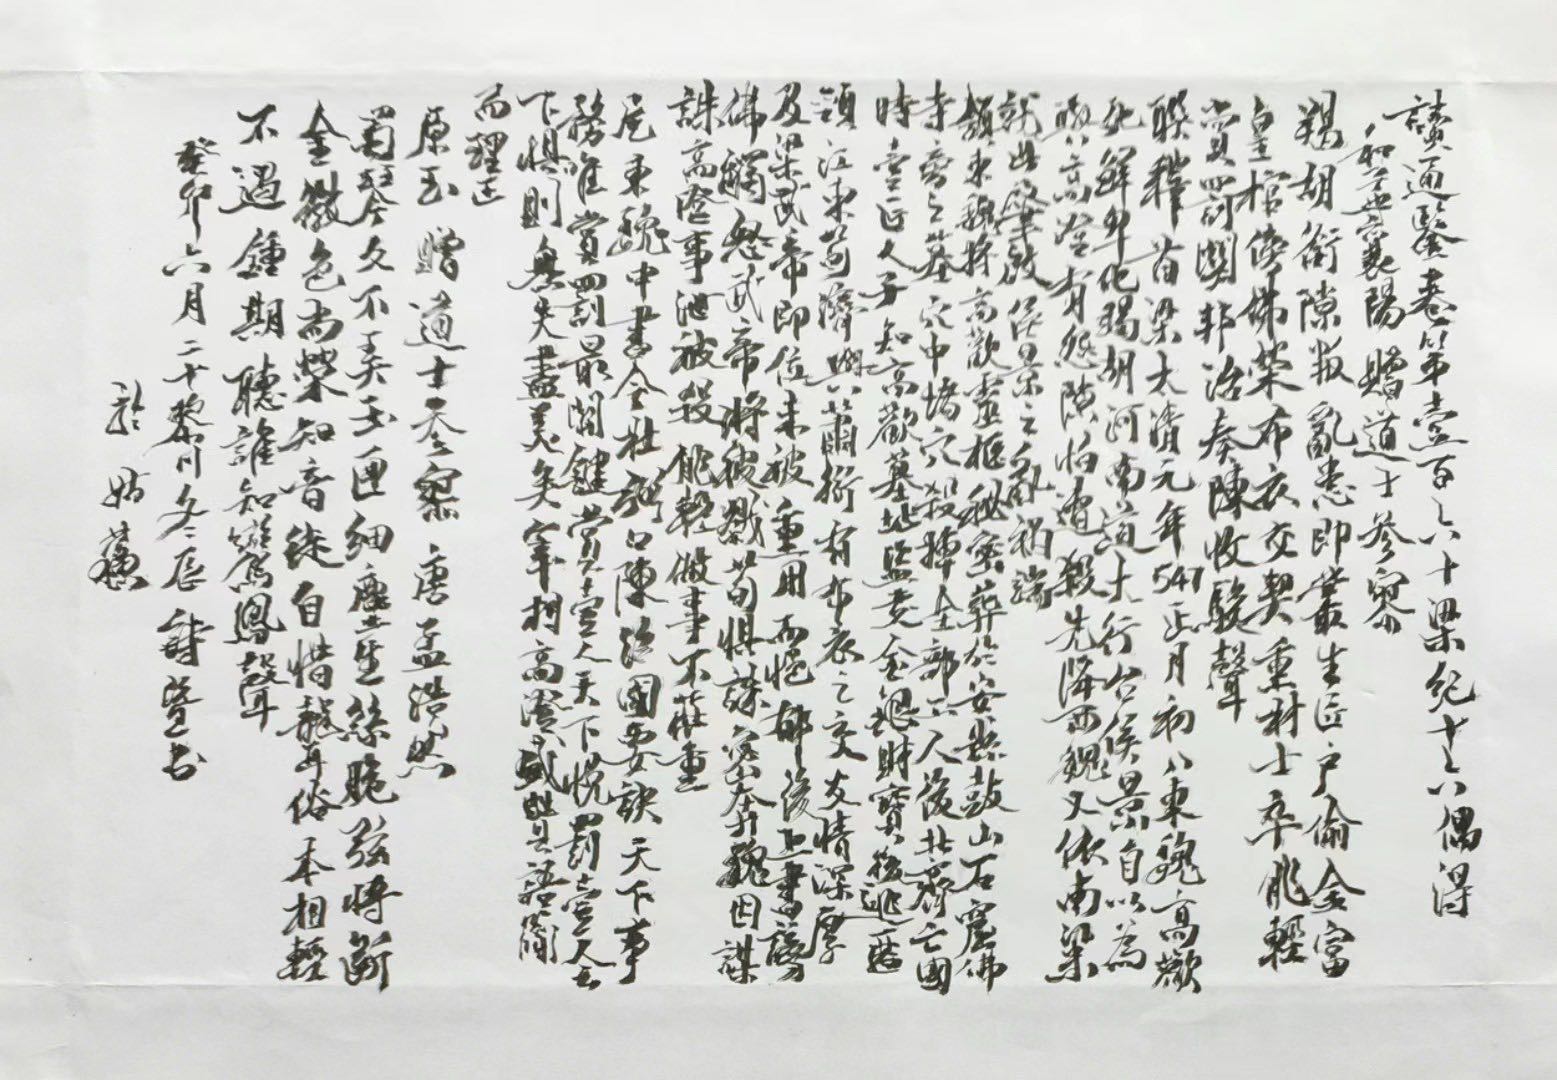 讀通鑒卷第壹百六十梁紀十六偶得
和孟襄陽贈道士參寥
羯胡銜隙叛亂患即叢生匠户偷金富
皇棺傍佛榮布衣交契重材士卒能輕
賞罰関邦治奏陳收駿聲
聯釋首梁太清元年547正月初八東魏高歡
死鮮卑化羯胡河南道大行台侯景自以為
與高澄有怨隙怕遭殺先降西魏又依南梁
就此肇啟侯景之亂禍端
額東魏將高歡靈柩秘密葬於安鼓山石窟佛
寺旁之墓穴中堵穴殺掉全部工人後北齊亡國
時壹匠人子知高歡墓址監盗金銀財寶後逃匿
頷江東荀濟與蕭衍有布衣之交友情深厚
及梁武帝即位未被重用而悒鬱後上書謗
佛觸怒武帝將被戮荀惧謀密奔魏因謀
誅高澄事泄被殺能輕做事不莊重
尾東魏中書令杜弼口陳治國要訣天下事
務唯賞罰最関鍵賞壹人天下悅罰壹人天
下惧則無失盡美矣宰相高澄感賞語簡
而理正
原玉 贈道士參寥 唐孟浩然
蜀琴久不弄玉匣細塵生絲脆弦將斷
金徽色尚榮知音徒自惜聾俗本相輕
不遇鍾期聽誰知鸞鳳聲
癸卯六月二十黎川冬辰 書
於 姑蘇